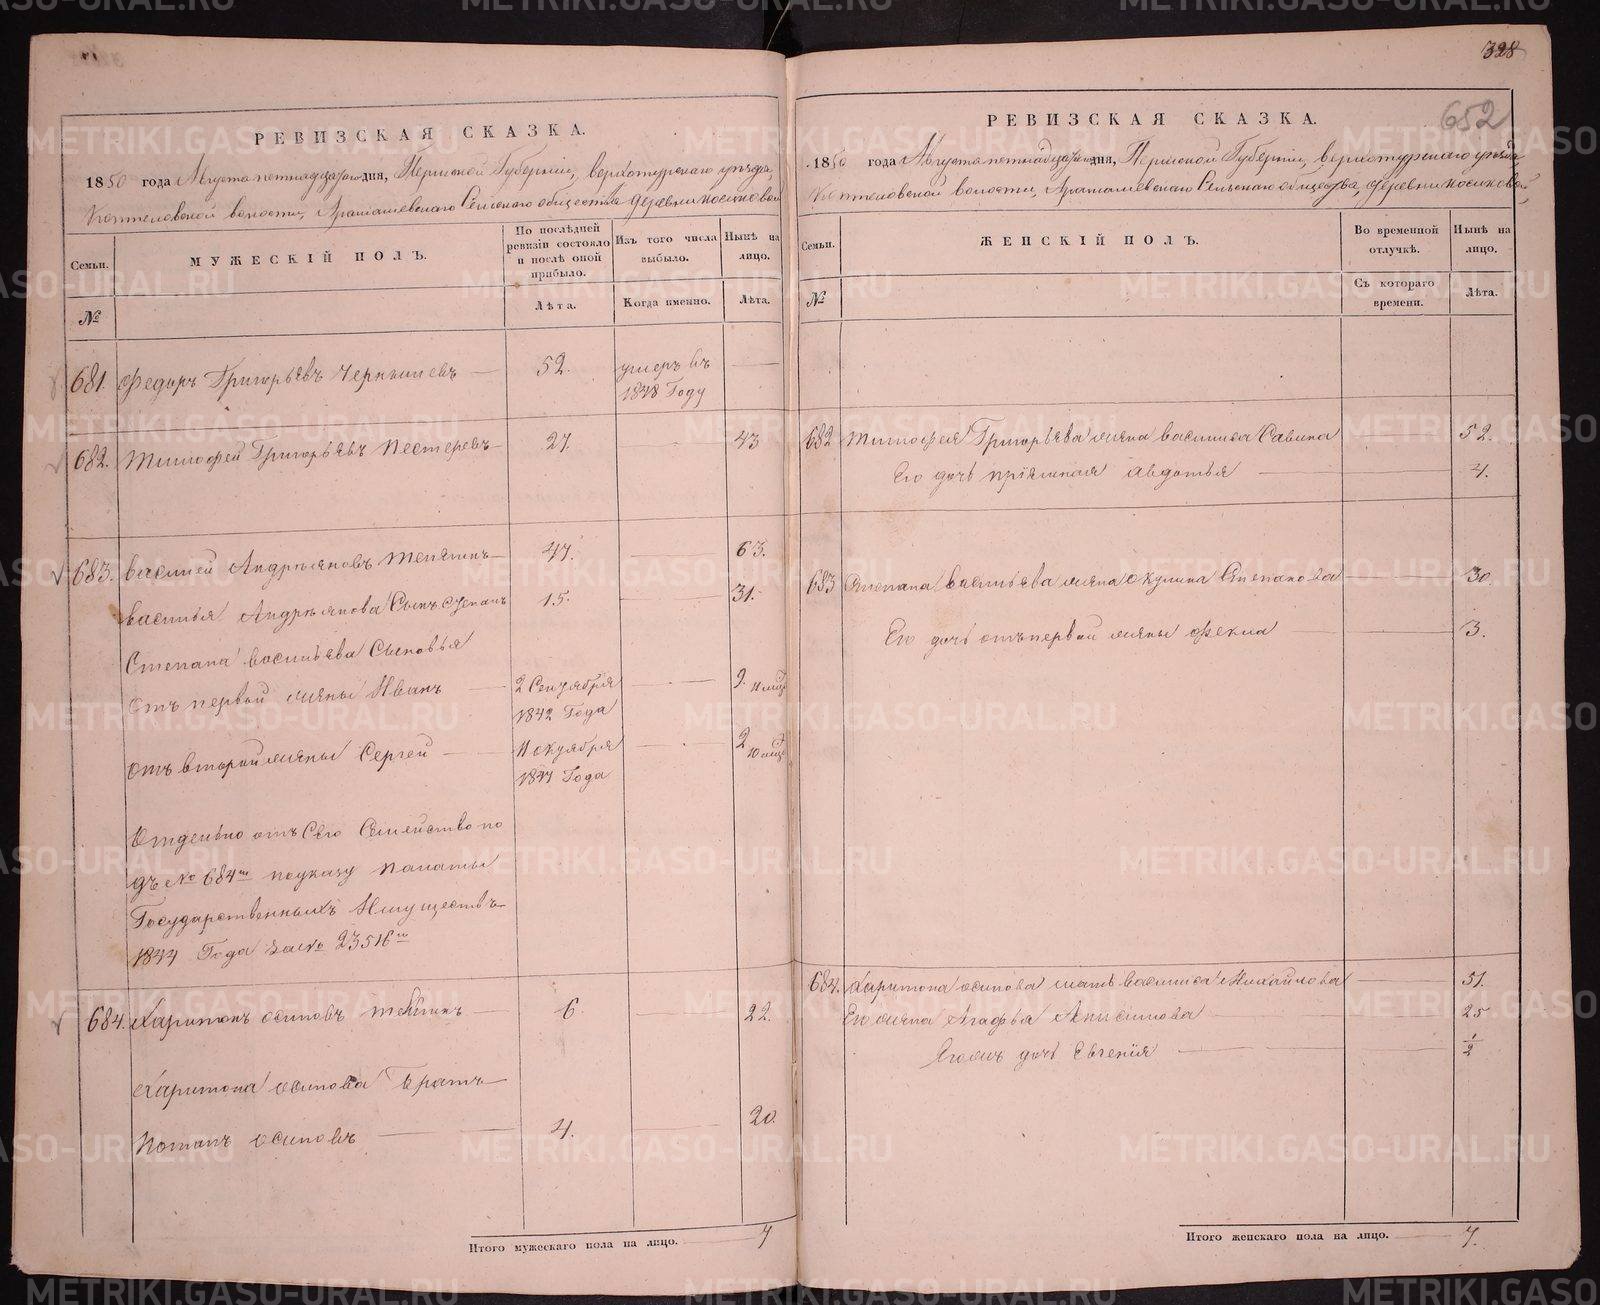 РЕВИЗСКАЯ СКАЗКА.
1850 года Августа пятнадцатаго дня, Пермской Губерніи, верхотурскаго уѣзда,
Коптеловской волости, Арамашевскаго Сельскаго общества деревни косиковой
Семьи.
МУЖЕСКІЙ ПОЛЪ.
По послѣдней ревизіи состояло и послѣ оной прибыло.
Изъ того числа выбыло.
Нынѣ на лицо.
№
Лѣта.
Когда именно.
Лѣта.
681. Федоръ Григорьевъ Чернышевъ 52. умеръ въ
1848 Году
682. Тимофей Григорьевъ Пестеревъ 27. 43
683. Василей Андреяновъ 47. 63.
Василья Андреянова Сынъ Степанъ 15. 31.
Степана васильева Сыновья
Отъ первой жены Иванъ 2 Сентября 9. 11 мцъ
1842 Года
отъ второй жены Сергей 11 октября 2 10 мцъ
1847 Года
Отдельно отъ Сего Семейство по
дъ № 684 поуказу Палаты
Государственныхъ Имуществъ
1844 Года за № 23516
684. Харитонъ осиповъ 6. 22.
Харитона осипова братъ
Потапъ осиповъ 4. 20.
Итого мужескаго пола на лицо. 7
328
652
РЕВИЗСКАЯ СКАЗКА.
1850 года Августа пятнадцатаго дня, Пермской Губерніи, верхотурскаго уѣзда
Коптеловской волости, Арамашевскаго Сельскаго общества, деревни косиковой,
Семьи.
ЖЕНСКІЙ ПОЛЪ.
Во временной отлучкѣ.
Нынѣ на лицо.
№
Съ котораго времени.
Лѣта.
682 Тимофея Григорьева жена василиса Савина 52.
Его дочь пріемная авдотья 4.
683 Степана васильева жена окулина Степанова 30.
Его дочь отъ первой жены фекла 3.
684. Харитона осипова мать василиса Михайлова 51.
Его жена Агафья Анисимова 25
дочь Евгенія 1/2
Итого женскаго пола на лицо. 7.
METRIKI.GASO-URAL.RU